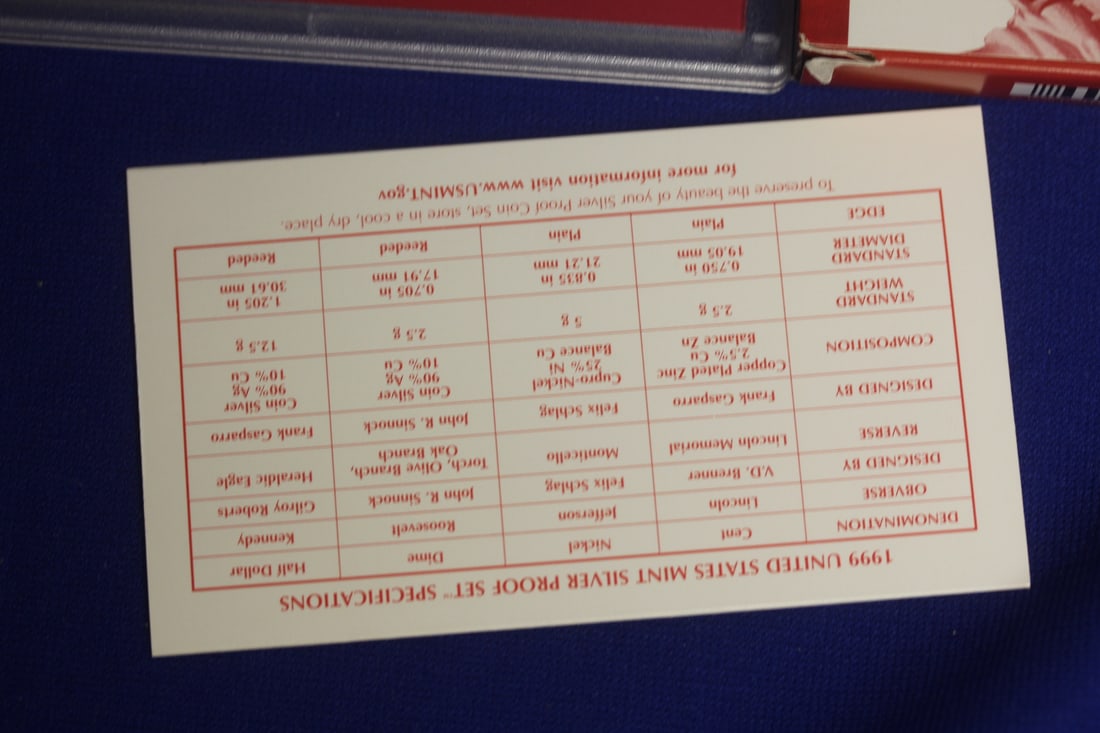 1999 UNITED STATES MINT SILVER PROOF SET™ SPECIFICATIONS
DENOMINATION Cent Nickel Dime Half Dollar
OBVERSE Lincoln Jefferson Roosevelt Kennedy
DESIGNED BY V.D. Brenner Felix Schlag John R. Sinnock Gilroy Roberts
REVERSE Lincoln Memorial Monticello Torch, Olive Branch, Oak Branch Heraldic Eagle
DESIGNED BY Frank Gasparro Felix Schlag John R. Sinnock Frank Gasparro
COMPOSITION Copper Plated Zinc 2.5% Cu Balance Zn Cupro-Nickel 25% Ni Balance Cu Coin Silver 90% Ag 10% Cu Coin Silver 90% Ag 10% Cu
STANDARD WEIGHT 2.5 g 5 g 2.5 g 12.5 g
STANDARD DIAMETER 0.750 in 19.05 mm 0.835 in 21.21 mm 0.705 in 17.91 mm 1.205 in 30.61 mm
EDGE Plain Plain Reeded Reeded
To preserve the beauty of your Silver Proof Coin Set, store in a cool, dry place.
for more information visit www.USMINT.gov